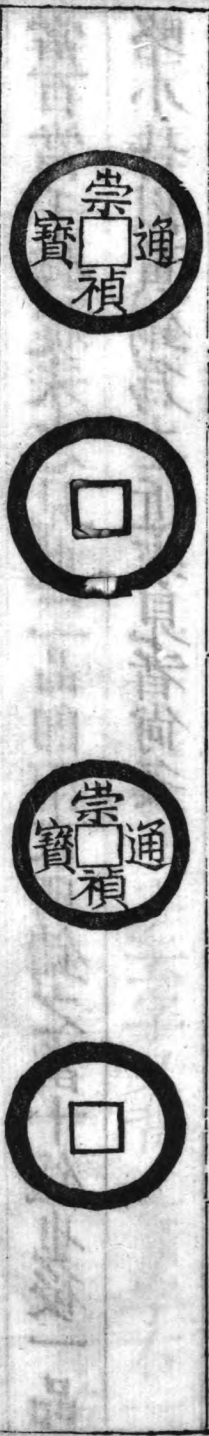 崇禎通寶
崇禎通寶